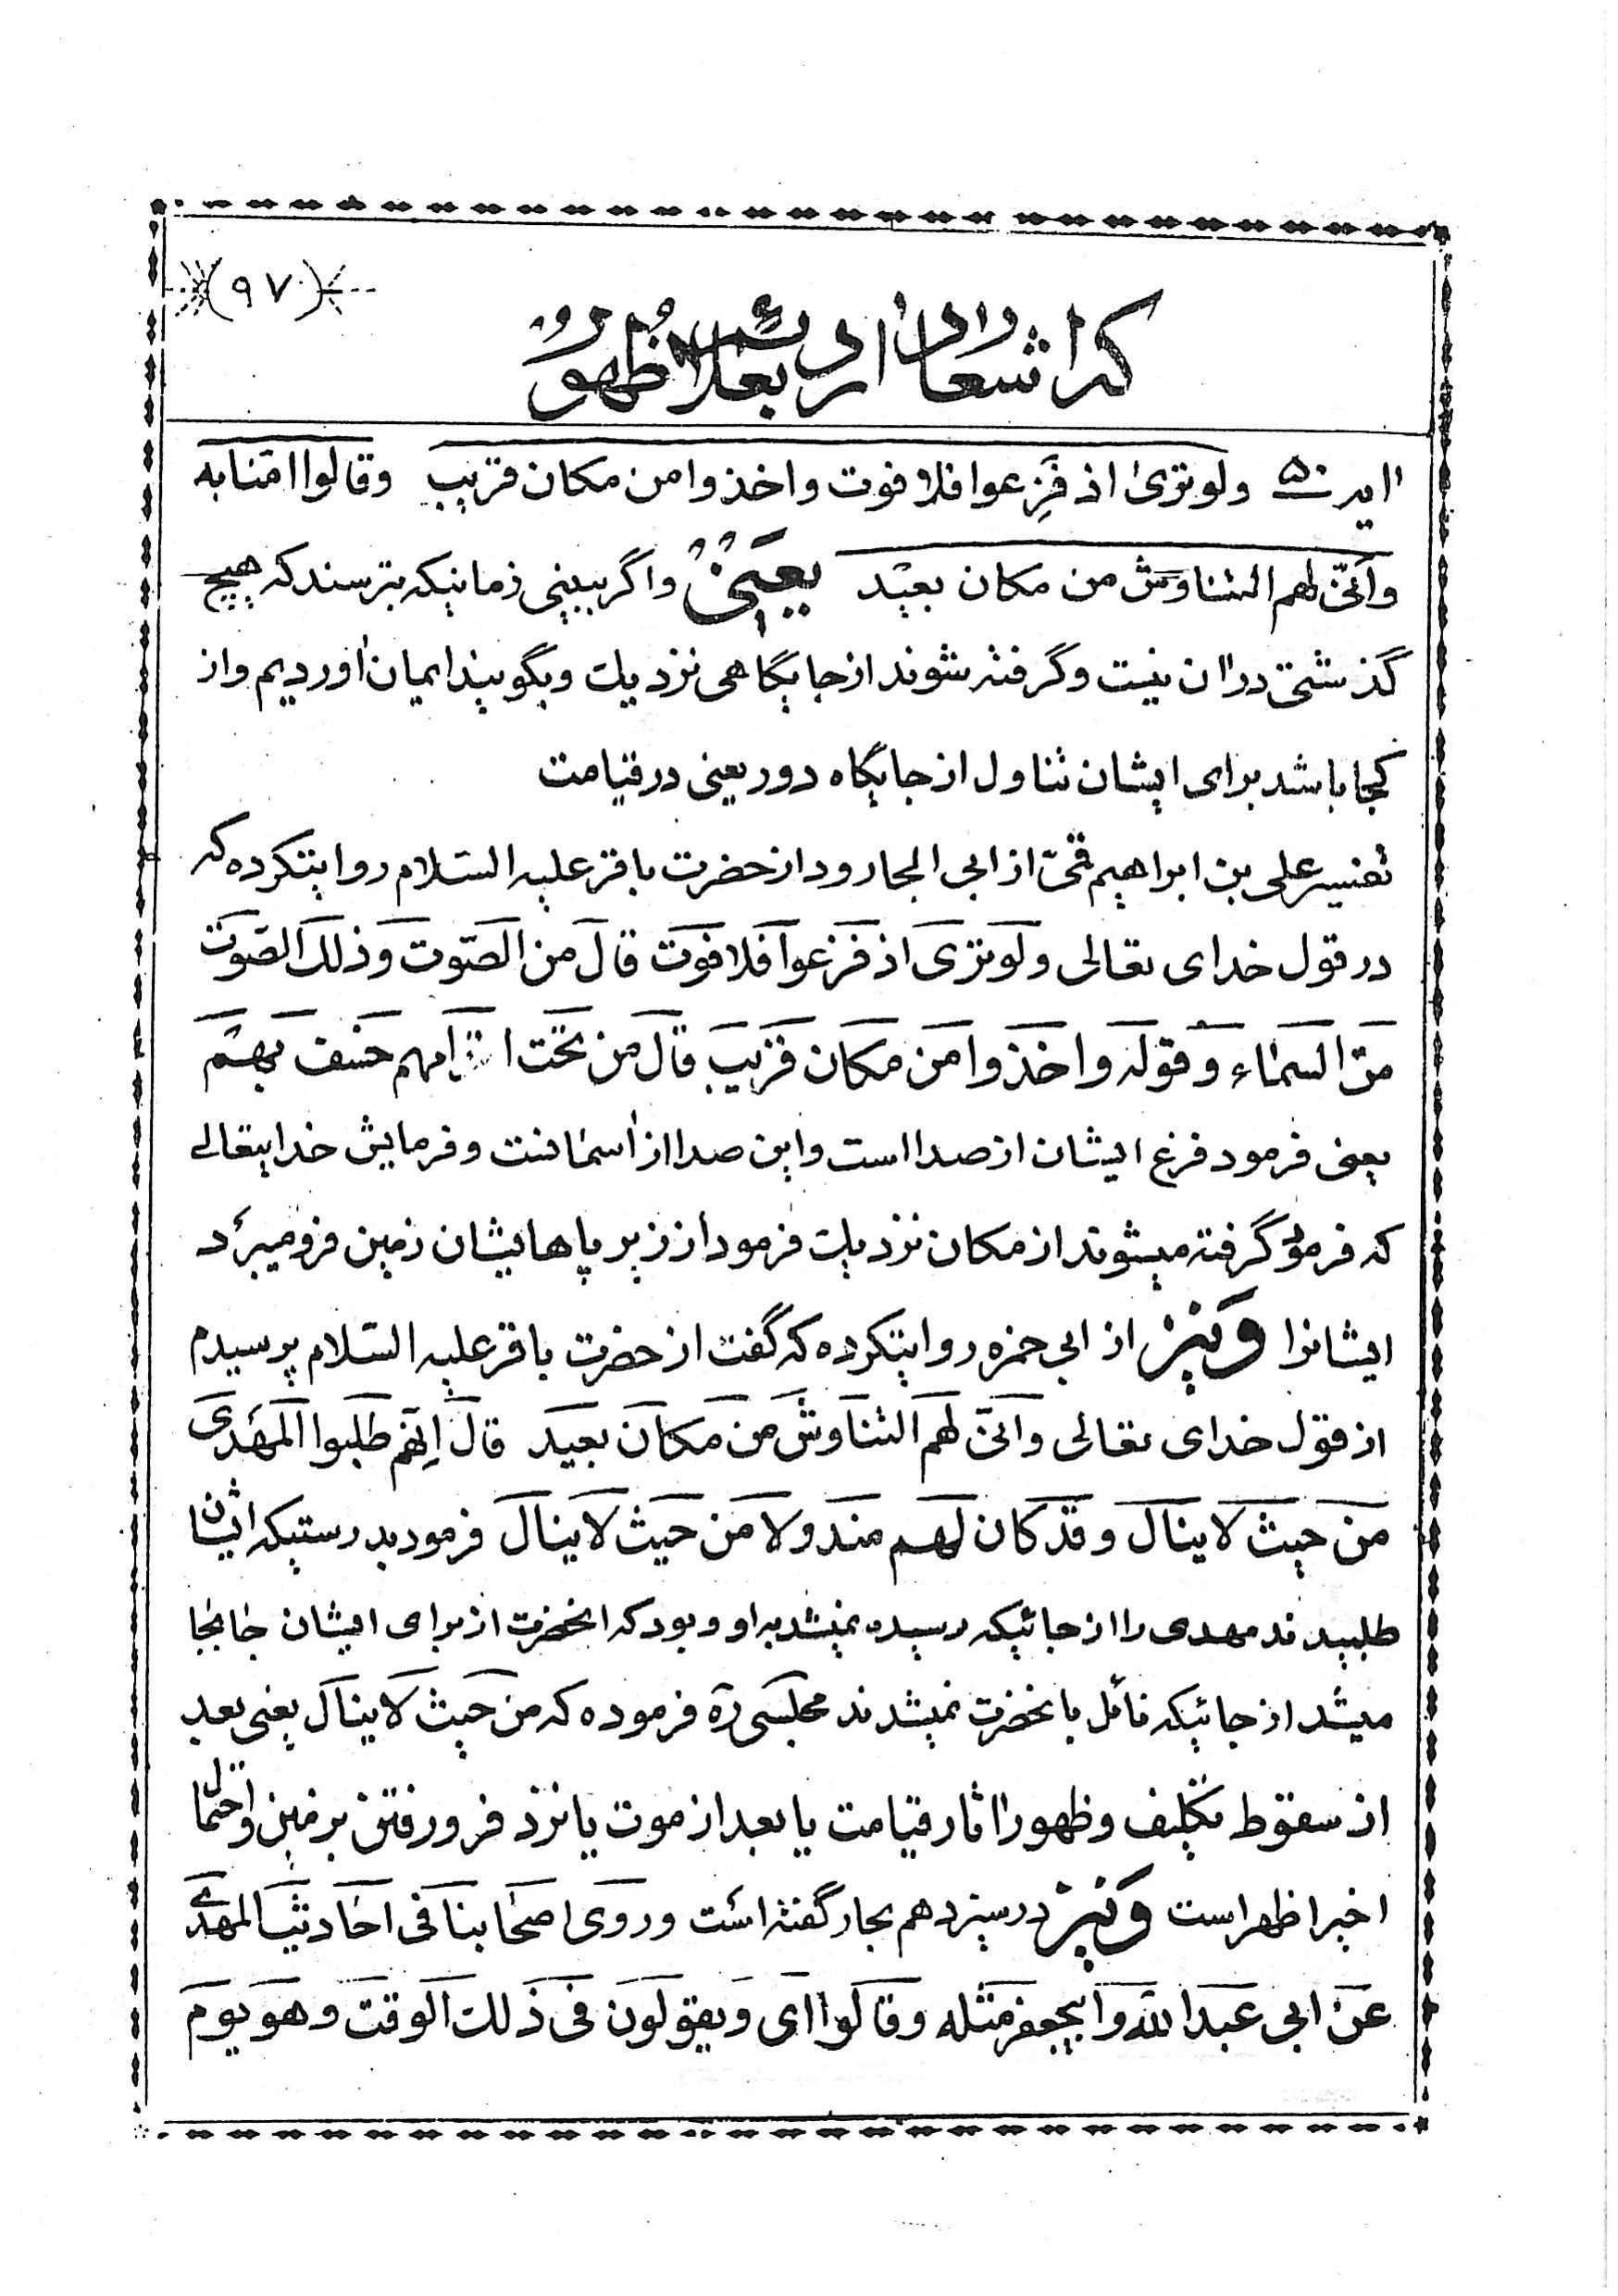 (٩٧)
که اشعار دارد بعلائم ظهور
ایه ۵۰ ولو تری اذ فَزِعوا فلا فوت واخذوا من مکان قریب وقالوا امنّا به
وانّی لهم التناوش من مکان بعید یعنی واگر ببینی زمانیکه بترسند که هیچ
گذشتی در ان نیست وگرفته شوند از جایگاهی نزدیک وبگویند ایمان اوردیم واز
کجا باشد برای ایشان تناول از جایگاه دور یعنی در قیامت
تفسیر علی بن ابراهیم قمّی از ابی الجارود از حضرت باقر علیه السّلام روایتکرده که
در قول خدای تعالی ولو تری اذ فزعوا فلا فوت قال من الصّوت وذلک الصّوت
من السماء وقوله واخذوا من مکان قریب قال من تحت اقدامهم خسف بهم
یعنی فرمود فزع ایشان از صدا است واین صدا از اسمانست وفرمایش خدایتعالی
که فرمود گرفته میشوند از مکان نزدیک فرمود از زیر پاهایشان زمین فرو میبرد
ایشانرا ونیز از ابی حمزه روایتکرده که گفت از حضرت باقر علیه السّلام پرسیدم
از قول خدای تعالی وانّی لهم التناوش من مکان بعید قال اِنّهم طلبوا المهدی
من حیث لا ینال وقد کان لهم مبذولا من حیث لا ینال فرمود بدرستیکه ایشان
طلبیدند مهدی را از جائیکه رسیده نمیشد به او وبود که انحضرت از برای ایشان جابجا
میشد از جائیکه نائل بانحضرت نمیشدند مجلسی ره فرموده که من حیث لا ینال یعنی بعد
از سقوط تکلیف وظهور اثار قیامت یا بعد از موت یا نزد فرو رفتن بزمین واحتمال
اخیر اظهر است ونیز در سیزدهم بحار گفته است وروی اصحابنا فی احادیث المهدی
عن ابی عبد الله وابیجعفر مثله وقالوا ای ویقولون فی ذلک الوقت وهو یوم